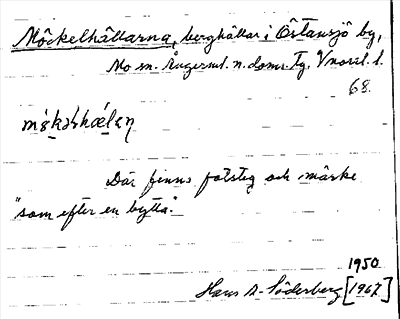 Möckelhällarna, berghällar i Örtansjö by,
Mo sn. Ångerml. n. doms. tg. V norrl. l.
68.
Där finns fotsteg och märke
"som efter en bytta".
1950
Hans A. Söderberg [1967]